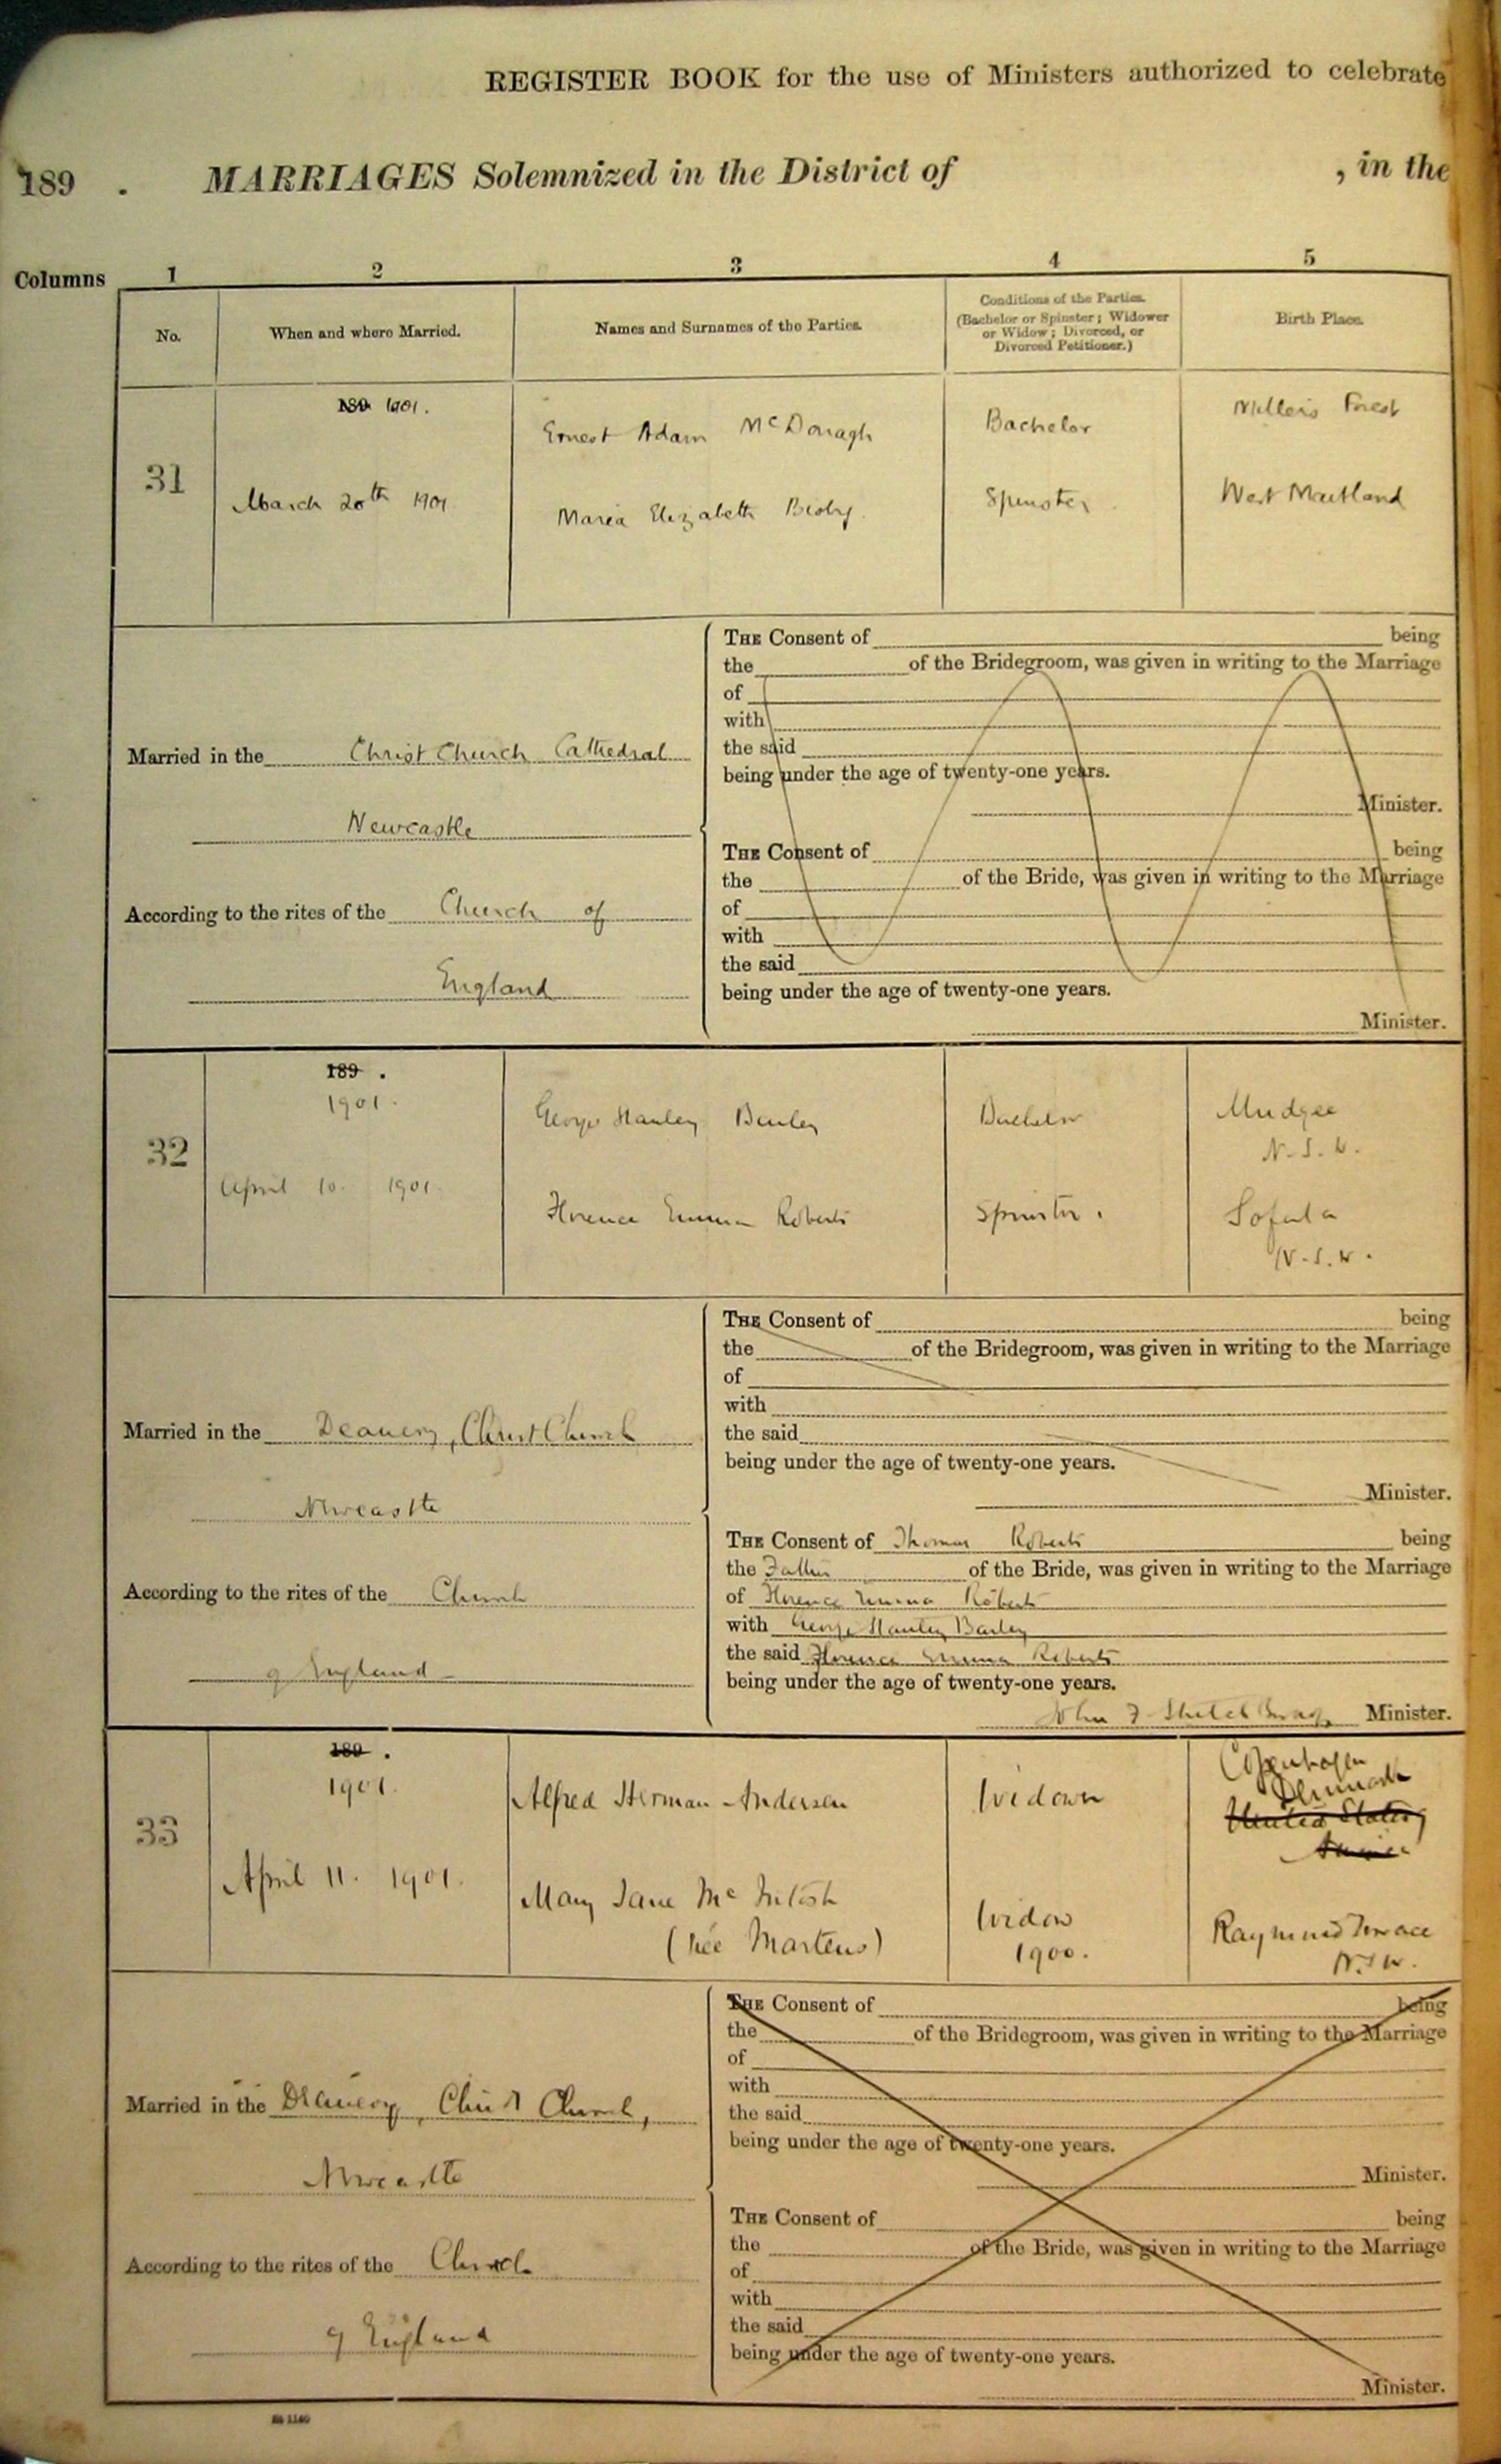 REGISTER BOOK for the use of Ministers authorized to celebrate
189 . MARRIAGES Solemnized in the District of , in the
Columns 1 2 3 4 5
No. When and where Married. Names and Surnames of the Parties. Conditions of the Parties. (Bachelor or Spinster; Widower or Widow; Divorced, or Divorced Petitioner.) Birth Place.
1901.
Ernest Adam McDonagh Bachelor Millers Forest
31
March 20th 1901 Maria Elizabeth Spinster West Maitland
THE Consent of being
the of the Bridegroom, was given in writing to the Marriage
of
with
Married in the Christ Church Cathedral
the said
being under the age of twenty-one years.
Minister.
Newcastle
THE Consent of being
the of the Bride, was given in writing to the Marriage
According to the rites of the Church of
of
with
the said
England
being under the age of twenty-one years.
Minister.
189 .
1901.
George Stanley Bachelor Mudgee
N.S.W.
32
April 10. 1901. Florence Emma Roberts Spinster. Sofala
N.S.W.
THE Consent of being
the of the Bridegroom, was given in writing to the Marriage
of
with
Married in the Deanery, Christ Church
the said
being under the age of twenty-one years.
Minister.
Newcastle
THE Consent of Thomas Roberts being
the Father of the Bride, was given in writing to the Marriage
According to the rites of the Church
of Florence Emma Roberts
with George Stanley
the said Florence Emma Roberts
of England
being under the age of twenty-one years.
John F Minister.
189 .
1901.
Alfred Herman Andersen Widower Copenhagen
Denmark
United States
America
33
April 11. 1901. Mary Jane McIntosh Widow Raymond Terrace
(née Martens) 1900. N.S.W.
THE Consent of being
the of the Bridegroom, was given in writing to the Marriage
of
with
Married in the Deanery, Christ Church,
the said
being under the age of twenty-one years.
Minister.
Newcastle
THE Consent of being
the of the Bride, was given in writing to the Marriage
According to the rites of the Church
of
with
the said
of England
being under the age of twenty-one years.
Minister.